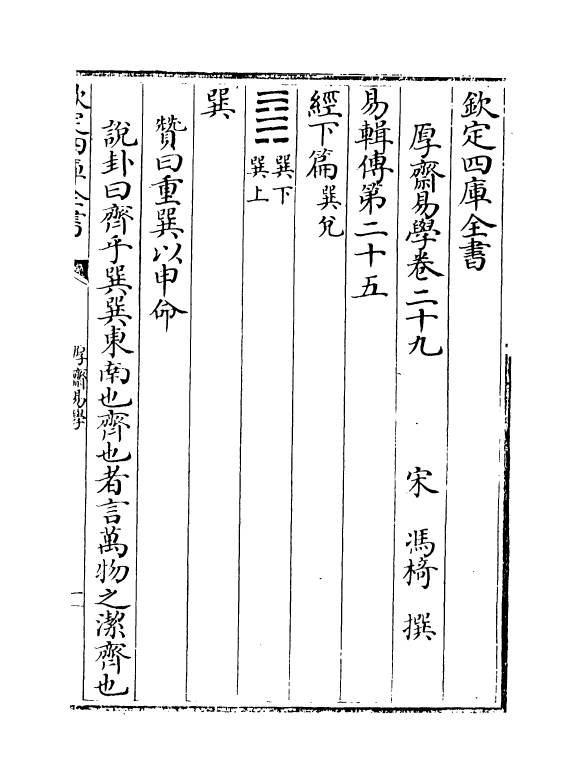 欽定四庫全書
厚齋易學卷二十九　宋　馮椅　撰
易輯傳第二十五
經下篇 巽兌
䷸ 巽下
巽上
巽
贊曰重巽以申命
說卦曰齊乎巽巽東南也齊也者言萬物之潔齊也
欽定四庫全書
厚齋易學
一